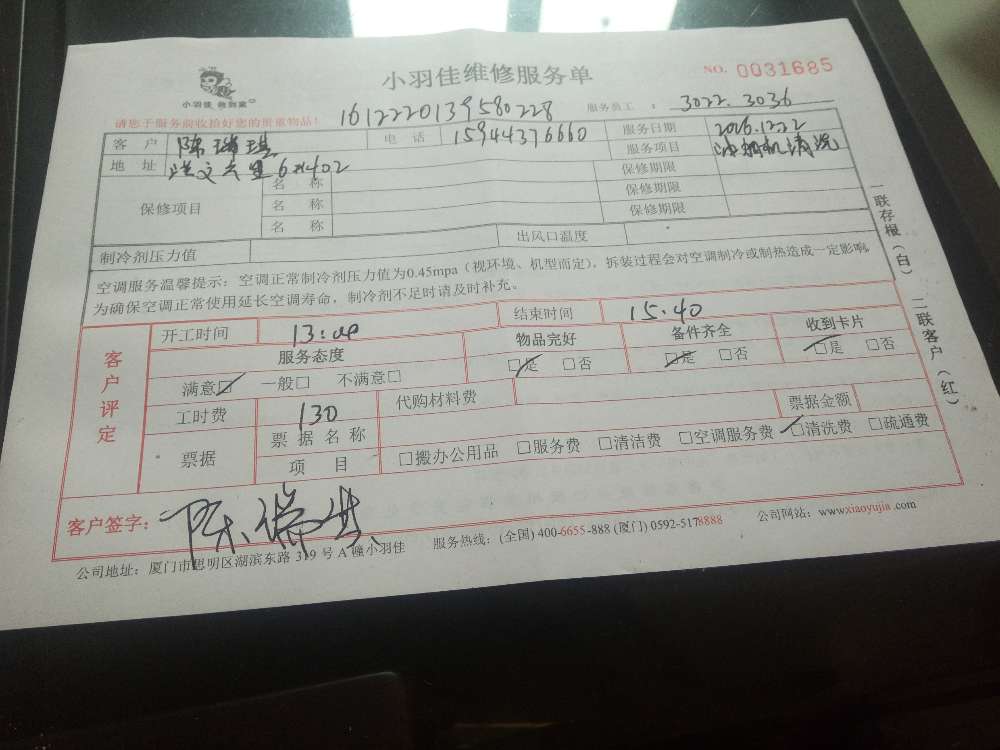 小羽佳 做到家
小羽佳维修服务单
NO. 0031685
请您于服务前收拾好您的贵重物品!
1612220139580228
服务员工 : 3022. 3036
客 户 陈瑞琪 电 话 15944376660 服务日期 2016.12.22
地 址 洪文六里6#402 服务项目 油烟机清洗
保修项目
名 称 保修期限
名 称 保修期限
名 称 保修期限
制冷剂压力值 出风口温度
空调服务温馨提示:空调正常制冷剂压力值为0.45mpa(视环境、机型而定),拆装过程会对空调制冷或制热造成一定影响,
为确保空调正常使用延长空调寿命,制冷剂不足时请及时补充。
客户评定
开工时间 13:00 结束时间 15:40
服务态度 物品完好 备件齐全 收到卡片
满意☑ 一般□ 不满意□ ☑是 □否 ☑是 □否 ☑是 □否
工时费 130 代购材料费
票据 票 据 名 称 票据金额
项 目 □搬办公用品 □服务费 □清洁费 □空调服务费 ☑清洗费 □疏通费
客户签字: 陈瑞琪
公司地址:厦门市思明区湖滨东路 319 号 A 幢小羽佳 服务热线:(全国) 400-6655-888 (厦门) 0592-5178888 公司网站:www.xiaoyujia.com
一联存根(白) 二联客户(红)